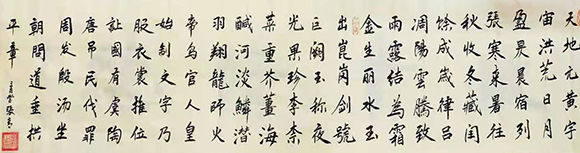 天地元黄宇
宙洪荒日月
盈昃晨宿列
張寒来暑往
秋收冬藏閏
餘成歲律吕
调陽雲騰致
雨露结為霜
金生丽水玉
出崑崗剑號
巨阙玉称夜
光果珍李柰
菜重芥薑海
鹹河淡鳞潜
羽翔龍師火
帝鸟官人皇
始制文字乃
服衣裳推位
讓國有虞陶
唐吊民伐罪
周发殷汤坐
朝問道垂拱
平章